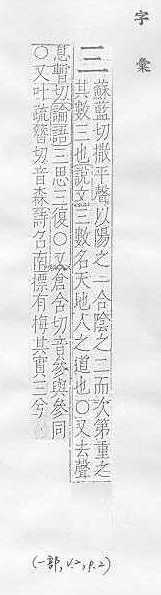 字彙
三
蘇藍切撒平聲以陽之一合陰之二而次第重之
其數三也說文三數名天地人之道也○又去聲
息暫切論語三思三復○又倉含切音參與參同
○又叶疏簪切音森詩召南摽有梅其實三兮
(一部, v.2, p.2)